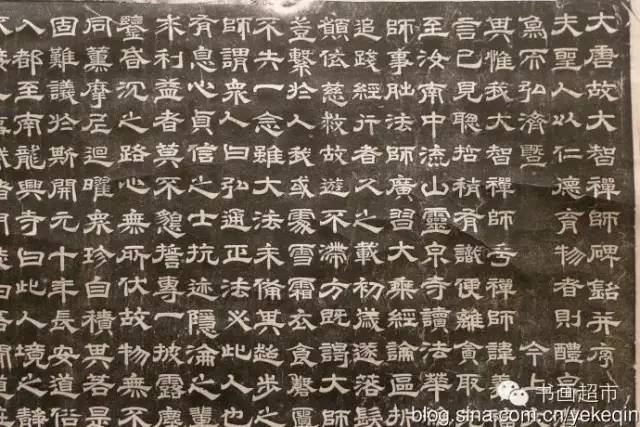 大唐故大智禪師碑銘并序
夫聖人以仁德育物者則醴
魚而弘濟暨 今上
其惟我大智禪師乎禪師諱義
言已見聰哲稍有識便離貪取
至汝南中流山靈泉寺讀法華
師事朏法師廣習大乘經論區析
追踐經行者久之載初歲遂落髮
願依慈救故遊不滯方既謁大師
豈繫於人我或處雪霜衣食罄匱
不失一念雖大法未備其超步之
師謂衆人曰弘通正法必此人也
有息心貞信之士抗迹隱淪之輩
求利益者莫不懇誓專一披露塵
鑒昏沉之路心無所伏故物無不
同薰摩尼迴曜衆珍自積其若是
固難議於斯開元十年長安道俗
入都至南龍興寺曰此人境之靜
书画超市
blog.sina.com.cn/yekeqin